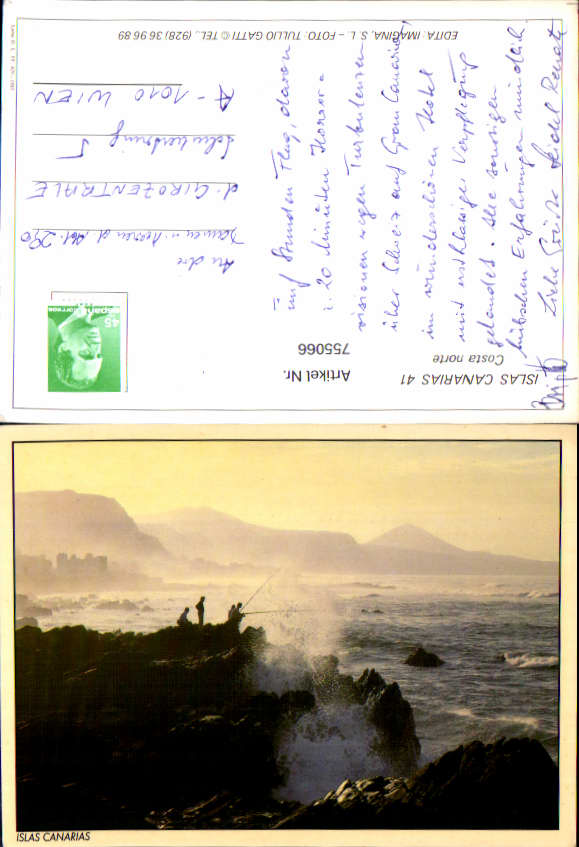 ISLAS CANARIAS 41
Costa norte
Artikel Nr.
755066
fünf Stunden Flug, davon
ca. 20 Minuten Horror-
visionen wegen Turbulenzen
über Schweiz auf Gran Canaria,
im wunderschönen Hotel
mit erstklassiger Verpflegung
gelandet. Alle sonstigen
hübschen Erfahrungen mündlich.
Liebe Grüße Renate
España correos
45
An die
Damen u. Herren d. Abt. 290
d. GIROZENTRALE
Schubertring 5
A-1010 WIEN
EDITA: IMAGINA, S. L. - FOTO: TULLIO GATTI © TEL. (928) 36 96 89
ISLAS CANARIAS